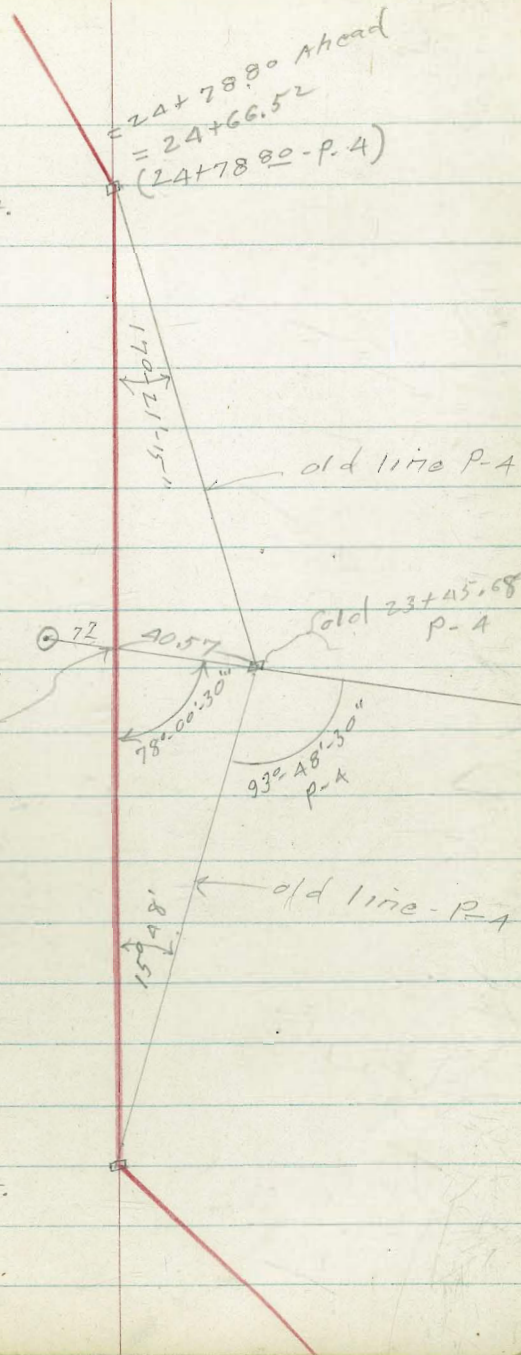 = 24+78.80 Ahead
= 24+66.52
(24+78 80 - P. 4)
17°-12'-15"
old line P-4
72
40.57
old 23+45.68
P-4
78°-00'-30"
93°-48'-30"
P-4
old line - P-4
15°48'